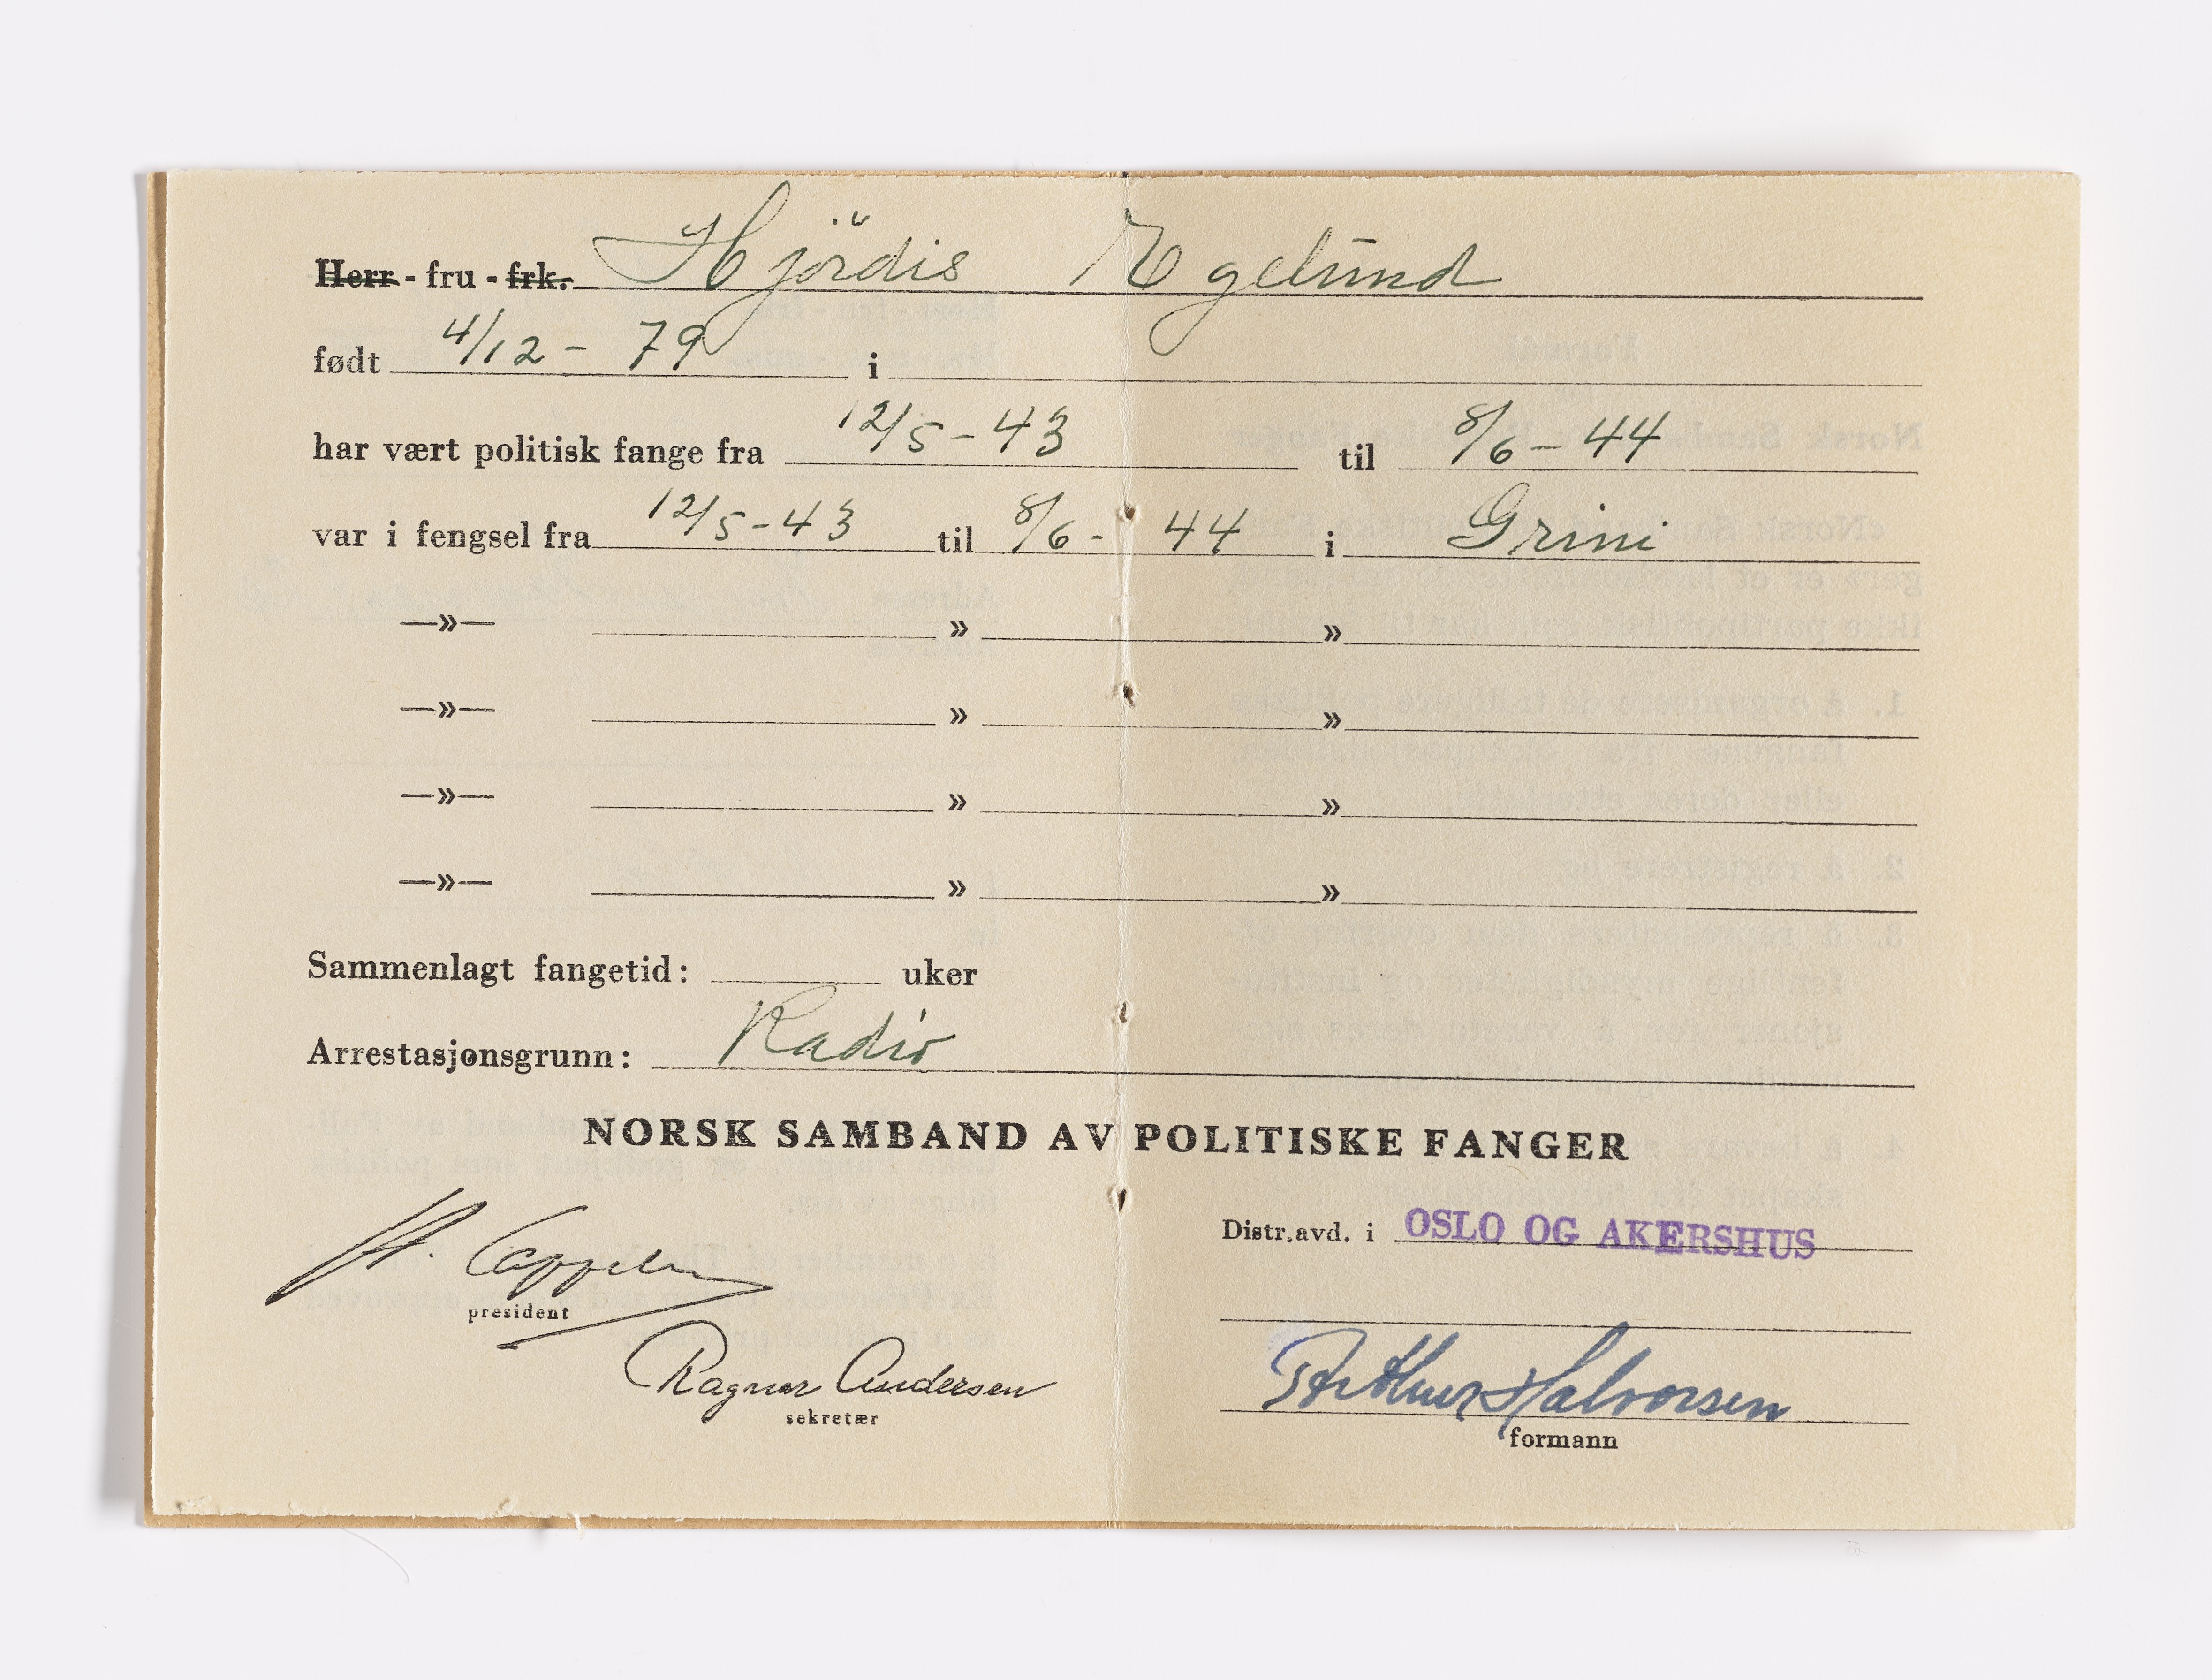 Herr - fru - frk. Hjördis Egelund
født 4/12 - 79 i
har vært politisk fange fra 12/5 - 43 til 8/6 - 44
var i fengsel fra 12/5 - 43 til 8/6 - 44 i Grini
—»— » »
—»— » »
—»— » »
—»— » »
Sammenlagt fangetid: uker
Arrestasjonsgrunn: Radio
NORSK SAMBAND AV POLITISKE FANGER
H. Cappelen
president
Ragnar Andersen
sekretær
Distr.avd. i OSLO OG AKERSHUS
Arthur Halvorsen
formann